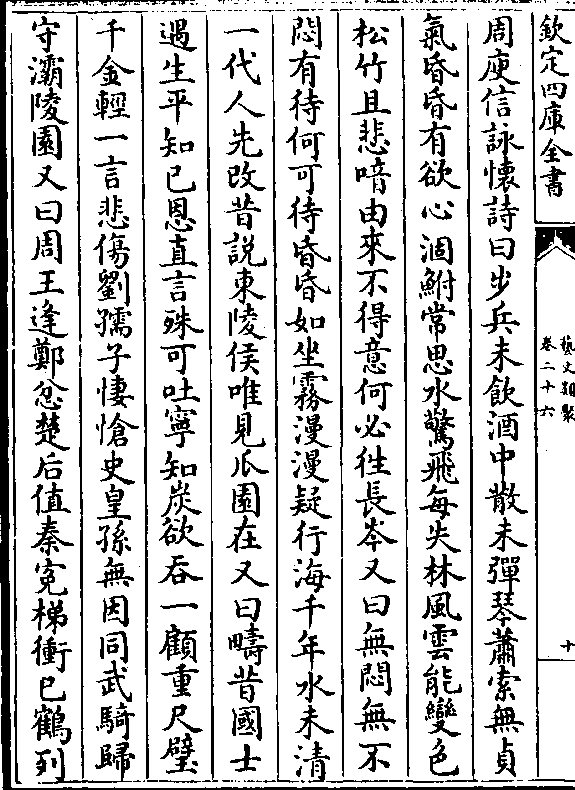 欽定四庫全書
藝文類聚
卷二十六
十
周庾信詠懷詩曰步兵未飲酒中散未彈琴蕭索無貞
氣昏昏有欲心涸鮒常思水驚飛每失林風雲能變色
松竹且悲喑由來不得意何必往長岑又曰無悶無不
悶有待何可待昏昏如坐霧漫漫疑行海千年水未清
一代人先改昔說東陵侯唯見瓜園在又曰疇昔國士
遇生平知已恩直言殊可吐寧知炭欲吞一顧重尺璧
千金輕一言悲傷劉孺子悽愴史皇孫無因同武騎歸
守灞陵園又曰周王逢鄭忿楚后值秦寃梯衝已鶴列